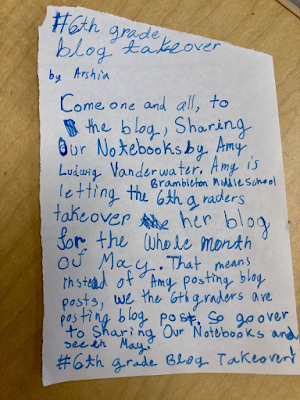 #6th grade
blog takeover
by Arshia
Come one and all, to
the blog, Sharing
Our Notebooks by Amy
Ludwig Vanderwater. Amy is
letting the Brambleton Middle School 6th graders
takeover her blog
for the whole month
of May. That means
instead of Amy posting blog
posts, we the 6th graders are
posting blog post. So go over
to Sharing Our Notebooks and
see in May.
#6th grade Blog Takeover!